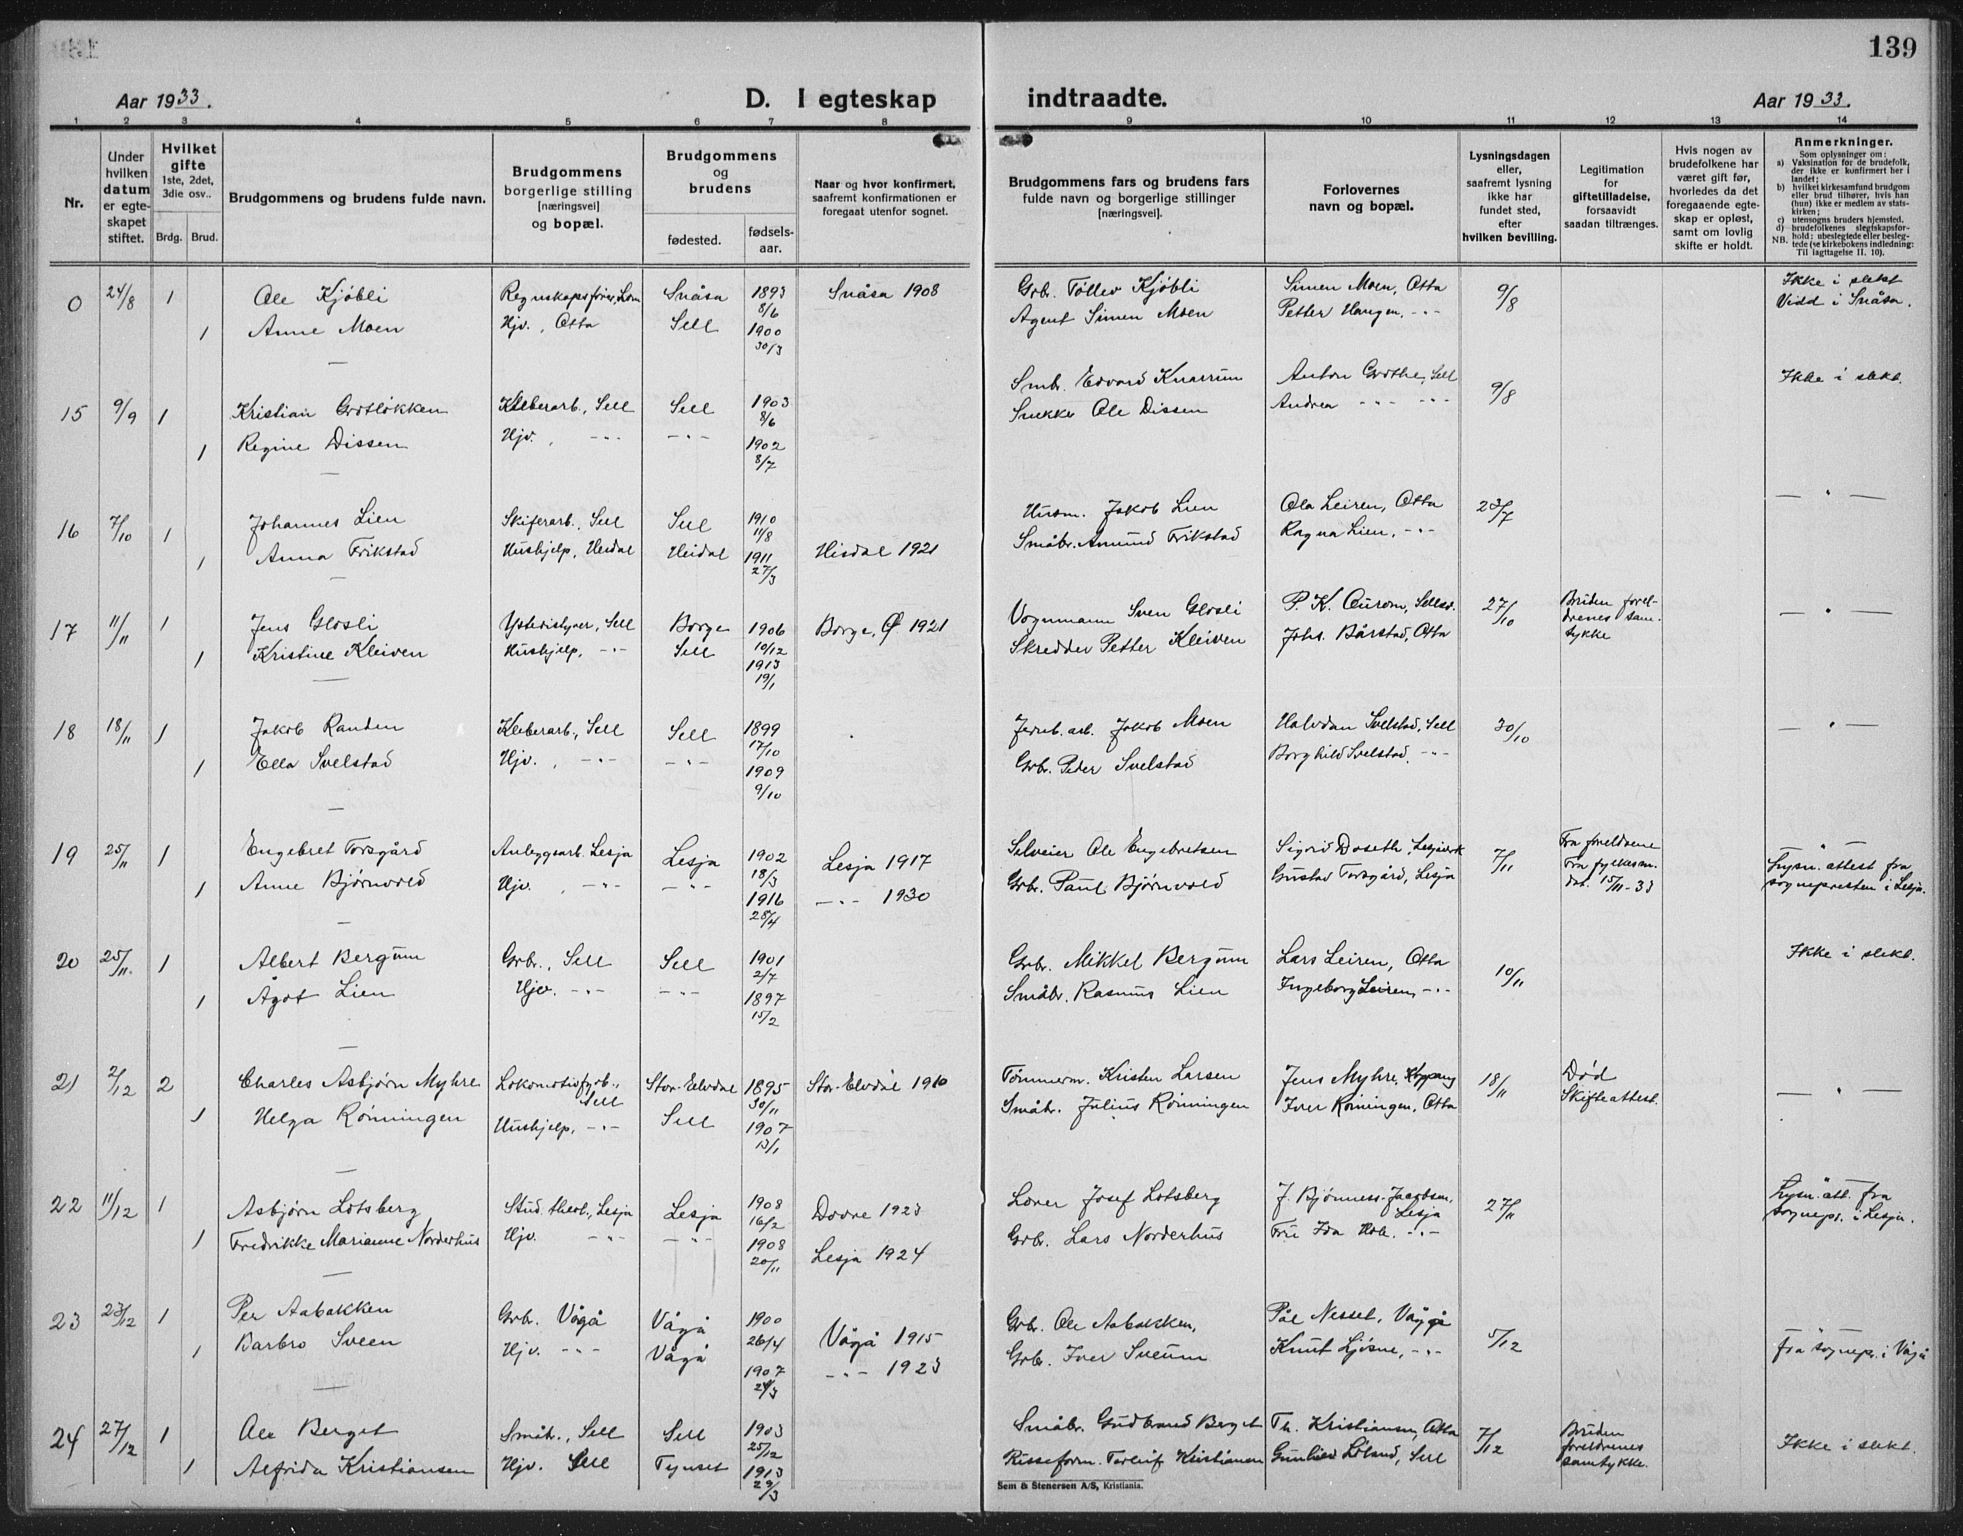 139
Aar 1933.
D. I egteskap indtraadte.
Aar 1933.
1 2 3 4 5 6 7 8 9 10 11 12 13 14
Nr.
Under hvilken datum er egte-skapet stiftet.
Hvilket gifte
1ste, 2det, 3die osv..
Brdg. Brud.
Brudgommens og brudens fulde navn.
Brudgommens borgerlige stilling [næringsvei] og bopæl.
Brudgommens og brudens
fødested.
fødsels-aar.
Naar og hvor konfirmert, saafremt konfirmationen er foregaat utenfor sognet.
Brudgommens fars og brudens fars fulde navn og borgerlige stillinger [næringsvei].
Forlovernes navn og bopæl.
Lysningsdagen eller, saafremt lysning ikke har fundet sted, efter hvilken bevilling.
Legitimation for giftetilladelse, forsaavidt saadan tiltrænges.
Hvis nogen av brudefolkene har været gift før, hvorledes da det foregaaende egte-skap er opløst, samt om lovlig skifte er holdt.
Anmerkninger.
Som oplysninger om:
a) Vaksination for de brudefolk, der ikke er konfirmert her i landet;
b) hvilket kirkesamfund brudgom eller brud tilhører, hvis han (hun) ikke er medlem av stats-kirken;
c) utensogns bruders hjemsted.
d) brudefolkenes slegtskapsfor-hold: ubeslegtede eller besleg-tede (se kirkebokens indledning: Til Iagttagelse II. 10).
NB.
0 24/8 1 Ole Kjøbli Regnskapsfører, Lom Snåsa 1893 8/6 Snåsa 1908 Grb. Tollev Kjøbli Simen Moen, Otta 9/8 Ikke i slekt Vidd i Snåsa.
1 Anne Moen Hjv., Otta Sell 1900 30/3 Agent Simen Moen Petter Haugen, -"-
15 9/9 1 Kristian Grotløkken Kleberarb., Sell Sell 1903 8/6 Smbr. Edvard Knarrum Anton Grothe, Sell 9/8 Ikke i slekt.
1 Regine Dissen Hjv., -"- -"- 1902 8/7 Snekker Ole Dissen Andrea -"- -"-
16 7/10 1 Johannes Lien Skiferarb., Sell Sell 1910 11/8 Husm. Jakob Lien Ola Leiren, Otta 23/7 — " —
1 Anna Frikstad Hushjelp, Heidal Heidal 1911 27/3 Hisdal 1921 Småbr. Amund Frikstad Ragna Lien, -"-
17 11/11 1 Jens Glosli Ystedistyrer, Sell Borge 1906 10/12 Borge, Ø 1921 Vognmann Sven Glosli P. K. Aurom, Sellsv. 27/10 Bruden forel-drenes sam-tykke — " —
1 Kristine Kleiven Hushjelp, -"- Sell 1913 19/1 Skredder Petter Kleiven Johs. Bårstad, Otta
18 18/11 1 Jakob Randen Kleberarb., Sell Sell 1899 17/10 Jernb. arb. Jakob Moen Halvdan Svelstad, Sell 30/10 — " —
1 Ella Svelstad Hjv., -"- -"- 1909 9/10 Grb. Peder Svelstad Borghild Svelstad, -"-
19 25/11 1 Engebret Torsgård Anleggsarb. Lesja Lesja 1902 18/3 Lesja 1917 Selveier Ole Engebretsen Sigurd Doseth, Lesjaverk 7/11 Fra foreldrene Fra fylkesm. dat. 15/11-33 — " — Lysn. attest fra sognepresten i Lesja.
1 Anne Bjørnvold Hjv., -"- -"- 1916 28/4 -"- 1930 Grb. Paul Bjørnvold Gustav Torsgård, Lesja
20 25/11. 1 Albert Bergum Grbr., Sell Sell 1901 2/7 Grb. Mikkel Bergum Lars Leiren, Otta 10/11 Ikke i slekt.
1 Ågot Lien Hjv. -"- -"- 1897 15/2 Småbr. Rasmus Lien Ingeborg Leiren, -"-
21 2/12 2 Charles Asbjørn Myhre Lokomotivfyrb., Sell Stor-Elvdal 1895 30/11 Stor-Elvdal 1910 Tømmerm. Kristen Larsen Jens Myhre, Koppang 18/11 Død Skifteattest. — " —
1 Helga Rønningen Hushjelp, -"- Sell 1907 13/1 Småbr. Julius Rønningen Iver Rønningen, Otta
22 11/12 1 Asbjørn Lotsberg Stud. theol., Lesja Lesja 1908 16/2 Dovre 1923 Lærer Josef Lotsberg J. Bjønness-Jacobsen, Lesja 27/11 — " — Lysn. att. fra sognepr. i Lesja.
1 Fredrikke Marianne Norderhus Hjv. -"- -"- 1908 20/11 Lesja 1924 Grb. Lars Norderhus Fru Ida Hob. -"-
23 23/12 1 Per Aabakken Grb. Vågå Vågå 1900 26/4 Vågå 1915 Grb. Ole Aabakken, Pål Nesset, Vågå 5/12 — " — fra sognepr. i Vågå
1 Barbro Sveen Hjv. -"- Vågå 1907 24/3 -"- 1923 Grb. Iver Sveum Knut Ljøsne, -"-
24 27/12 1 Ole Berget Småbr., Sell Sell 1903 25/12 Småbr. Gudbrand Berget Th. Kristiansen, Otta 7/12 Bruden foreldrenes samtykke. Ikke i slekt.
1 Alfrida Kristiansen Hjv. Sell Tynset 1913 29/3 Kristiansen Gunliev Løland, Sell
Sem & Stenersen A/S, Kristiania.